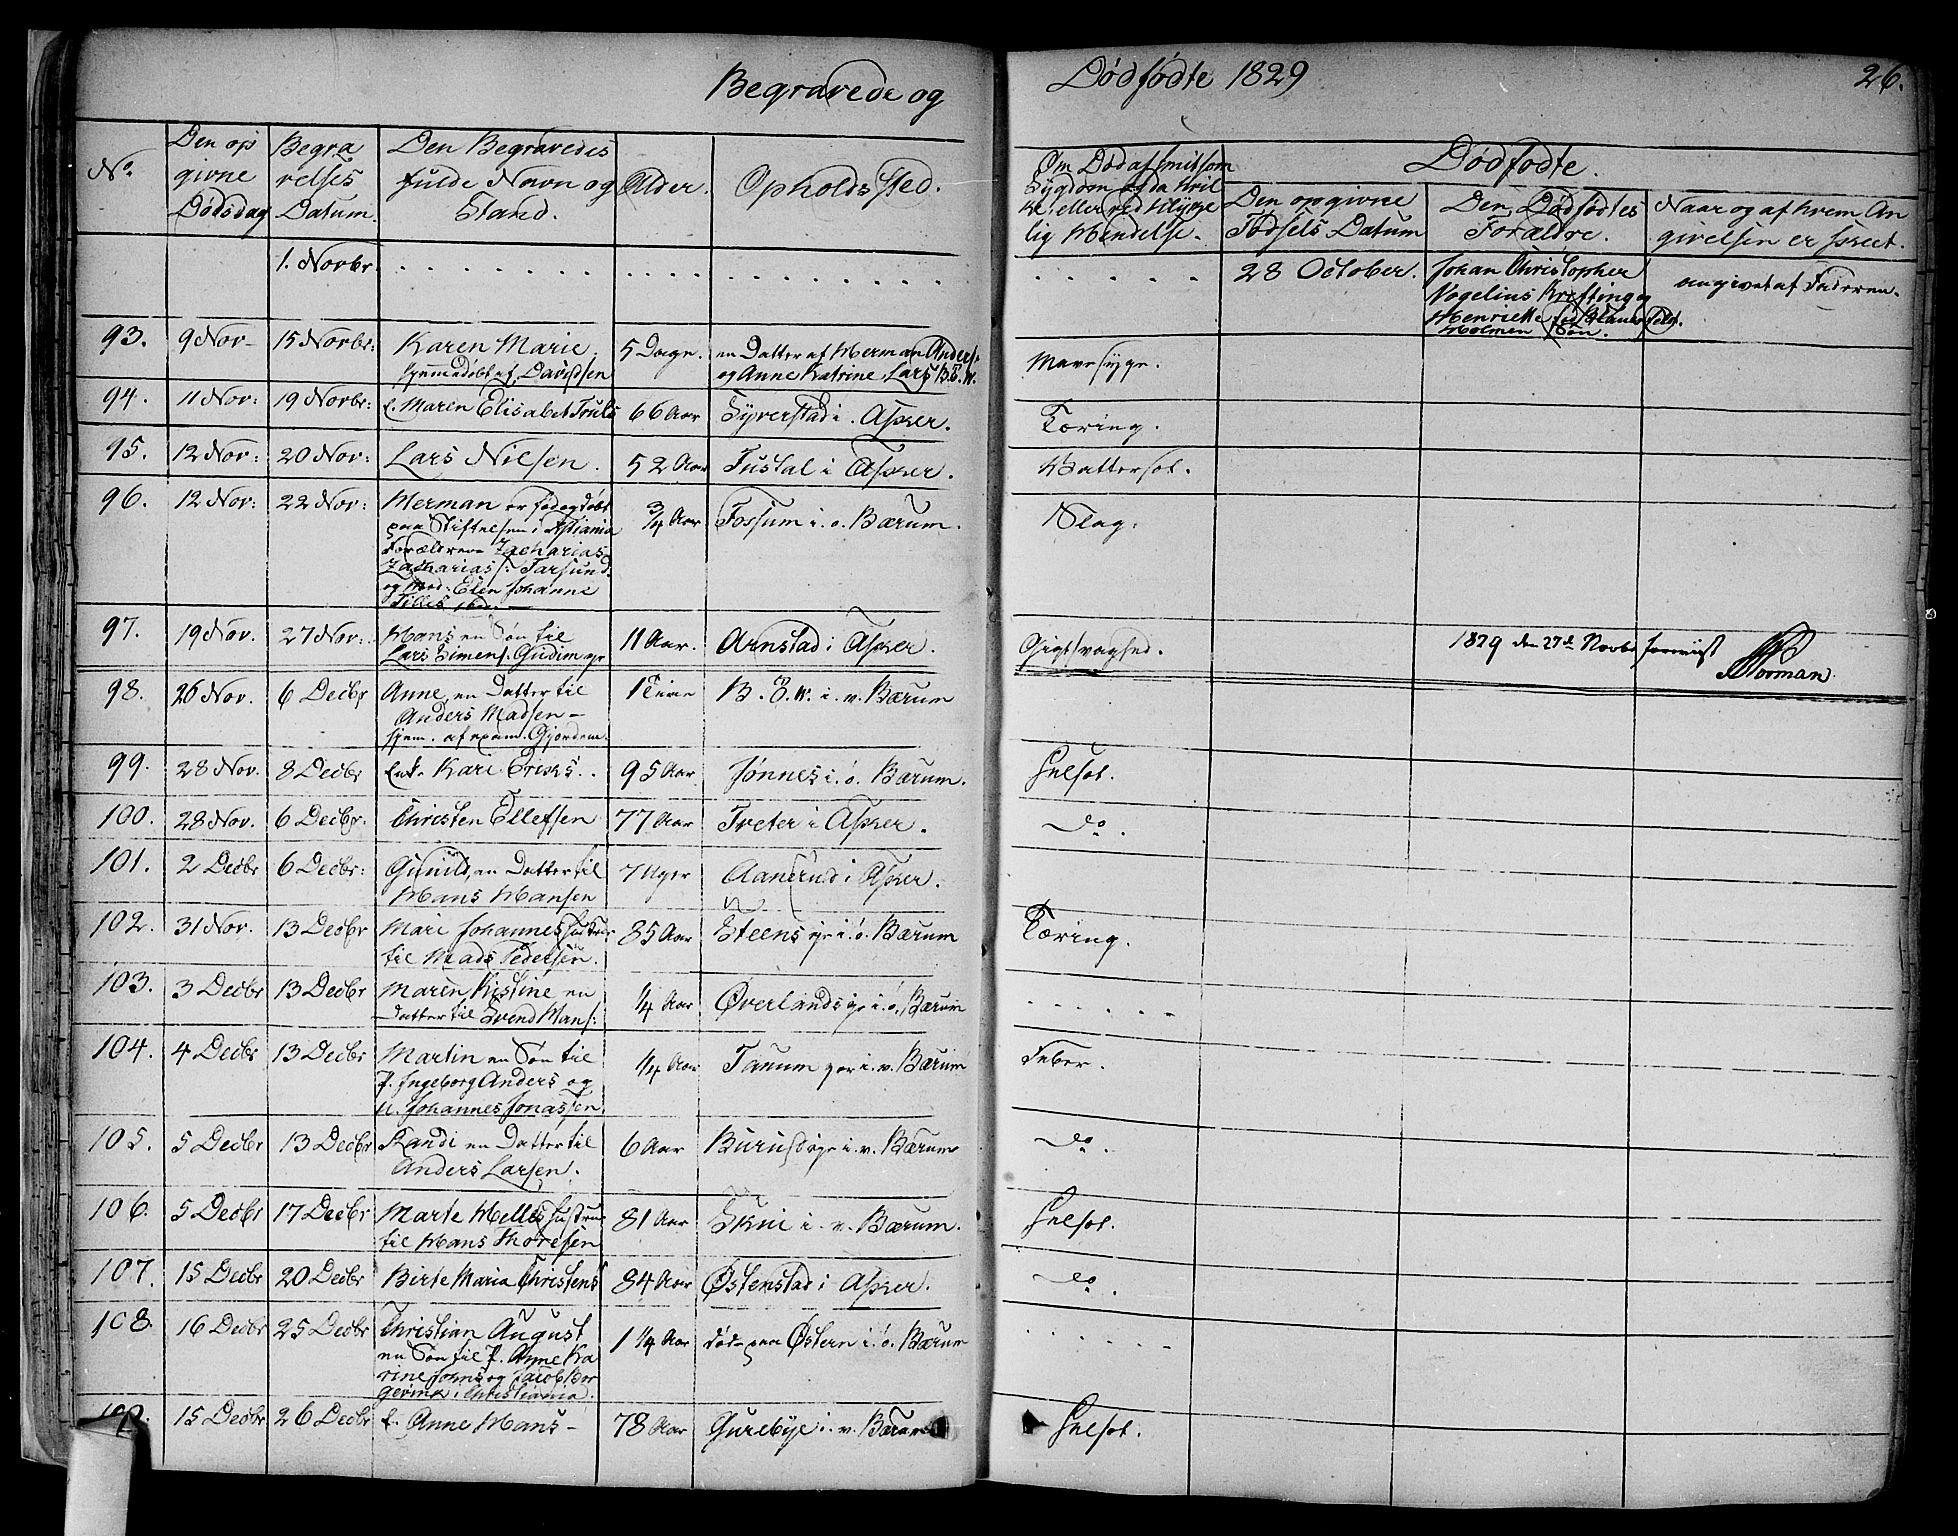 Begravede og Dødfødte 1829 26.
No.
Den op
givne
Dødsdag
Begra
velses
Datum.
Den Begravedes
fulde Navn og
Stand.
Alder.
Opholdssted.
Om Død af smitsom
Sygdom og da hvil
ken eller ved Ulykke
lig Hendelse.
Dødfødte.
Den opgivne
Fødsels Datum
Den Dødfødtes
Forældre.
Naar og af hvem An
givelsen er skeet.
1. Novbr. 28 October.
Johan Christopher
Vogelius Krefting og
Henriette
Holmen Søn.
angivet af Faderen.
93. 9 Nov 15 Novbr:
Karen Marie
hjemedøbt af Davidsen
5 Dage.
en Datter af Herman Anders:
og Anne Katrine Lars B. E. W.
Mavesyge.
94. 11 Nov: 19 Novbr: E. Maren Elisabet Truls 66 Aar Syverstad i Asker. Tæring.
95. 12 Nov: 20 Nov: Lars Nilsen. 52 Aar Tustal i Asker. Vattersot.
96. 12 Nov: 22 Nov:
Herman er fød og døbt
paa Stiftelsen i Xstiania
Forældrene Zacharias
Zacharias: Farsund
og Mod. Elen Johanne
3/4 Aar Fossum i. ø. Bærum. Slag:
97. 19 Nov. 27 Nov:
Hans en Søn til
Lars Simens: Gudim
11 Aar. Arnstad i Asker. Gigtsvaghed.
1829 den 27de Novbr
Norman
98. 26 Nov. 6 Decbr
Anne en Datter til
Anders Madsen
hjem. af Gjordem.
1 Time B. E. W. i. v. Bærum
99. 28 Nov. 8 Decbr Enk. Kari Eriks. 95 Aar Jønnes i. ø. Bærum. Helsot.
100. 28 Nov. 6 Decbr. Christen Ellefsen 77 Aar Tveter i Asker. do.
101. 2 Decbr 6 Decbr:
Gunild, en Datter til
Hans Hansen
7 Uger Aanerud i Asker.
102. 31 Nov. 13 Decbr
Mari Johannes Hustrue
til Mads Pedersen.
85 Aar Steens i. ø. Bærum Tæring.
103. 3 Decbr 13 Decbr
Maren Kistine en
Datter til Svend Hans:
1/4 Aar Øverlands i. ø. Bærum
104. 4 Decbr 13 Decbr
Martin en Søn til
P. Ingeborg Anders og
U. Johannes Jonassen
1/4 Aar Tanum i. v. Bærum Feber.
105. 5 Decbr 13 Decbr
Randi en Datter til
Anders Larsen.
6 Aar Burud i. v. Bærum do.
106. 5 Decbr 17 Decbr
Marte Helles Hustrue
til Hans Thoresen
81 Aar Skui i. v. Bærum. Helsot.
107. 15 Decbr 20 Decbr Birte Maria Christens 84 Aar Østenstad i Asker. do.
108. 16 Decbr 25 Decbr
Christian August
en Søn til P. Anne Ka
rine Johns og Jacob Bor
i Christiania.
1 1/4 Aar død paa Østern i. ø. Bærum
109. 15 Decbr 26 Decbr E. Anne Hans 78 Aar Gurebye i. v. Bærum Helsot.